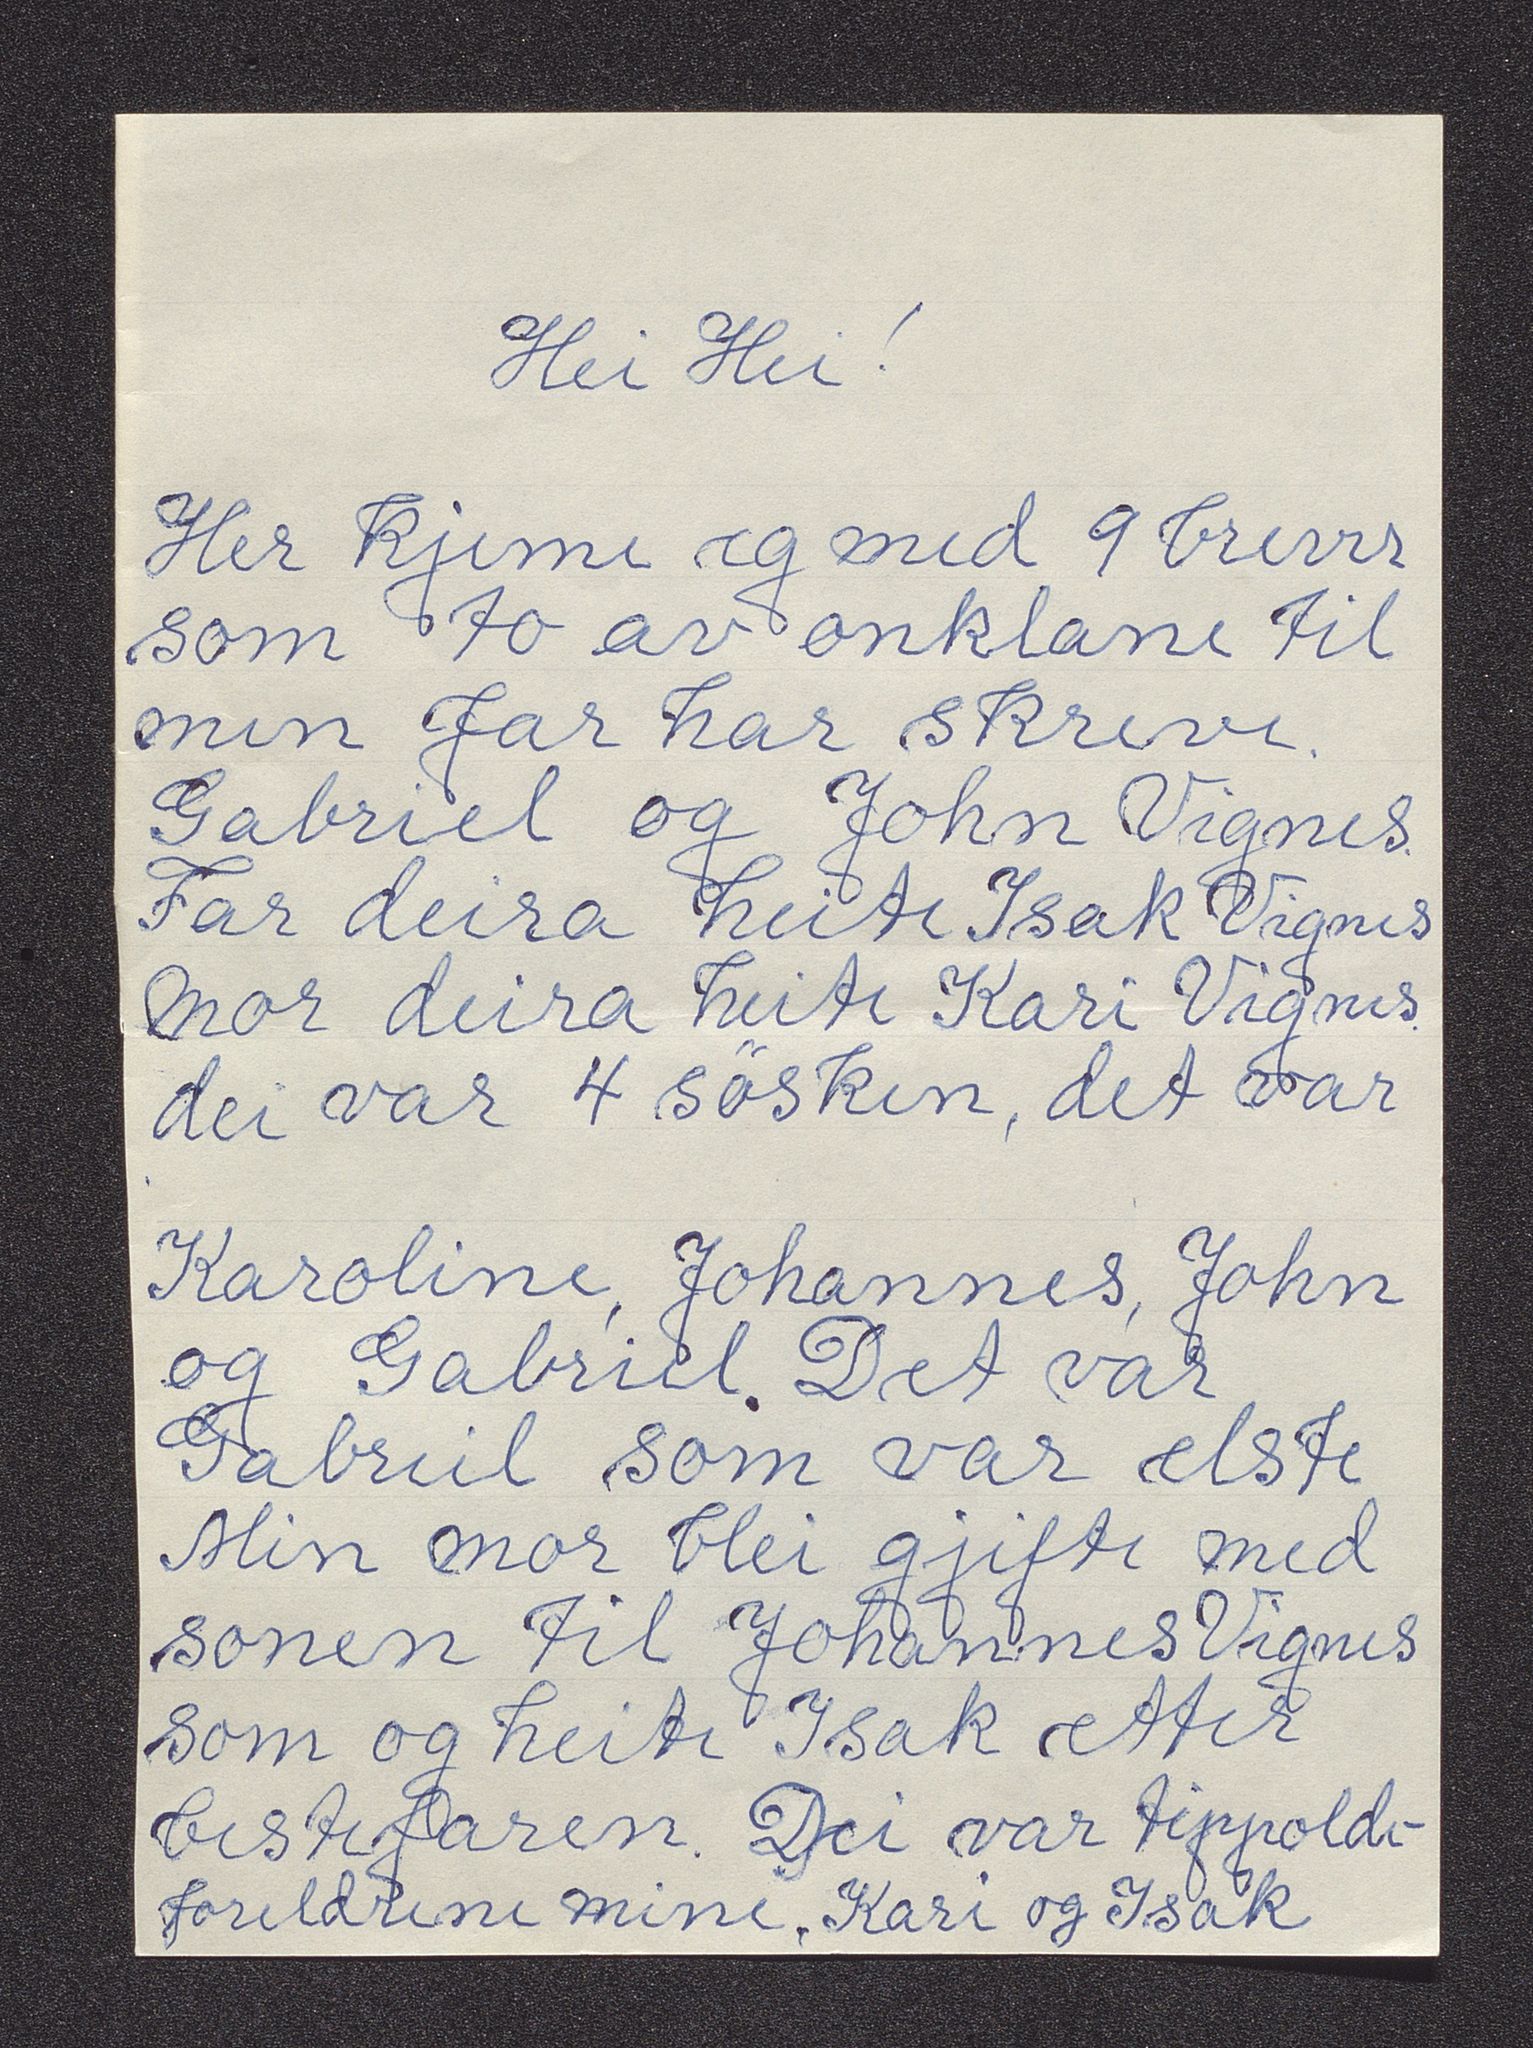 Hei Hei!
Her kjeme eg med 9 brever
som to av onklane til
min far har skreve.
Gabriel og John Vignes.
Far deira heite Isak Vignes
Mor deira heite Kari Vignes.
dei var 4 sösken, det var
Karoline, Johannes, John
og Gabriel. Det var
Gabriel som var elste
Min mor blei gjifte med
sonen til Johannes Vignes
som og heite Isak etter
bestefaren. Dei var tippolde-
foreldrene mine, Kari og Isak